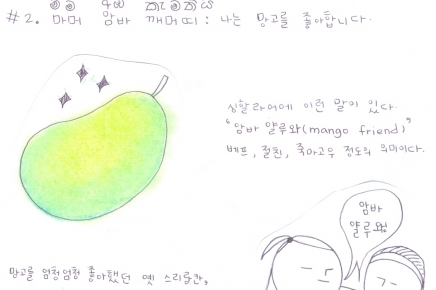 #2. 마머 암바 깨머띠 : 나는 망고를 좋아합니다.
싱할라어에 이런 말이 있다.
"암바 얄루와(mango friend)"
베프, 절친, 죽마고우 정도의 의미이다.
암바
망고를 엄청엄청 좋아했던 옛 스리랑칸,